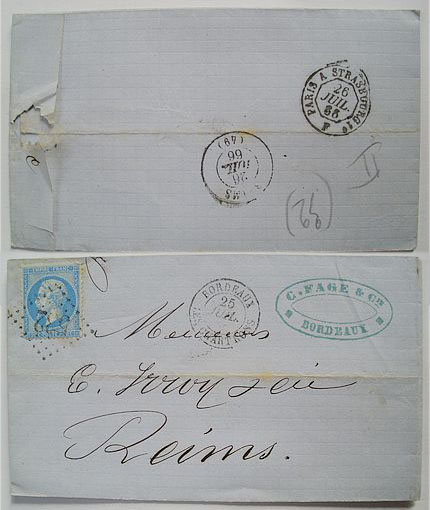 PARIS A STRASBOURG 1º
26
JUIL.
66
(67)
26
JUIL.
66
II
EMPIRE FRANC.
BORDEAUX
25
JUIL.
C. FAGE & Cie
BORDEAUX
Messieurs
E.
Reims.